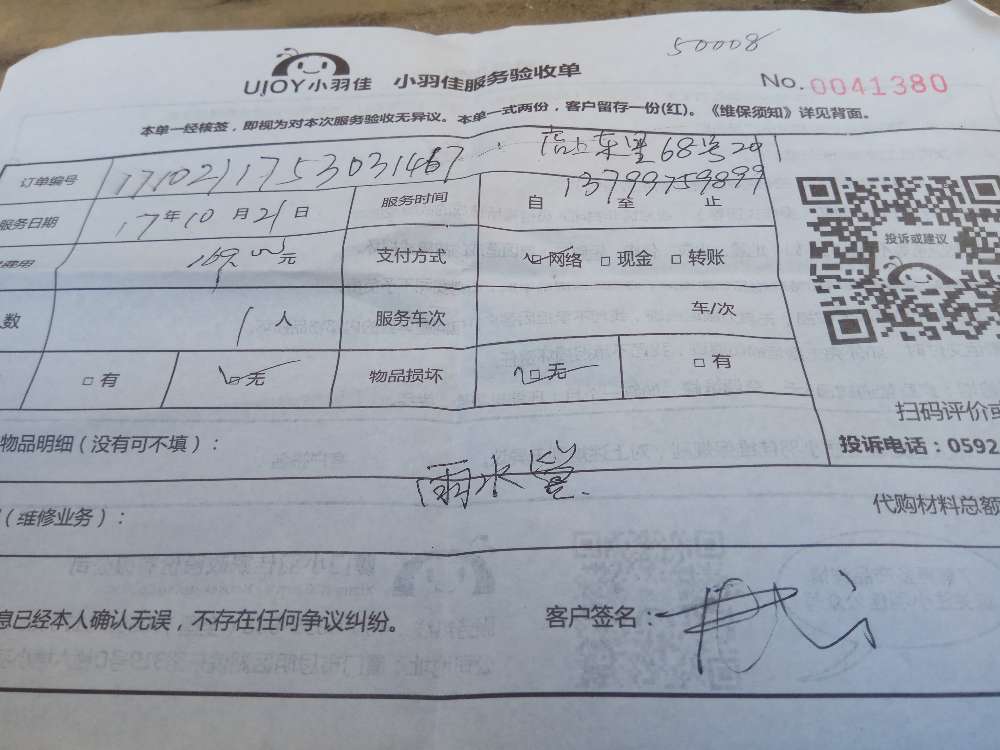 50008
UJOY小羽佳 小羽佳服务验收单
No. 0041380
本单一经核签，即视为对本次服务验收无异议。本单一式两份，客户留存一份(红)。《维保须知》详见背面。
订单编号 1710211753031467 东里68号20
13799759899
服务日期 17年10月21日 服务时间 自 至 止
费用 169 元 支付方式 □网络 □现金 □转账
投诉或建议
数 1人 服务车次 车/次
□有 □无 物品损坏 □无 □有
扫码评价或
物品明细（没有可不填）：
投诉电话：0592
雨水管
（维修业务）：
代购材料总额
息已经本人确认无误，不存在任何争议纠纷。 客户签名：